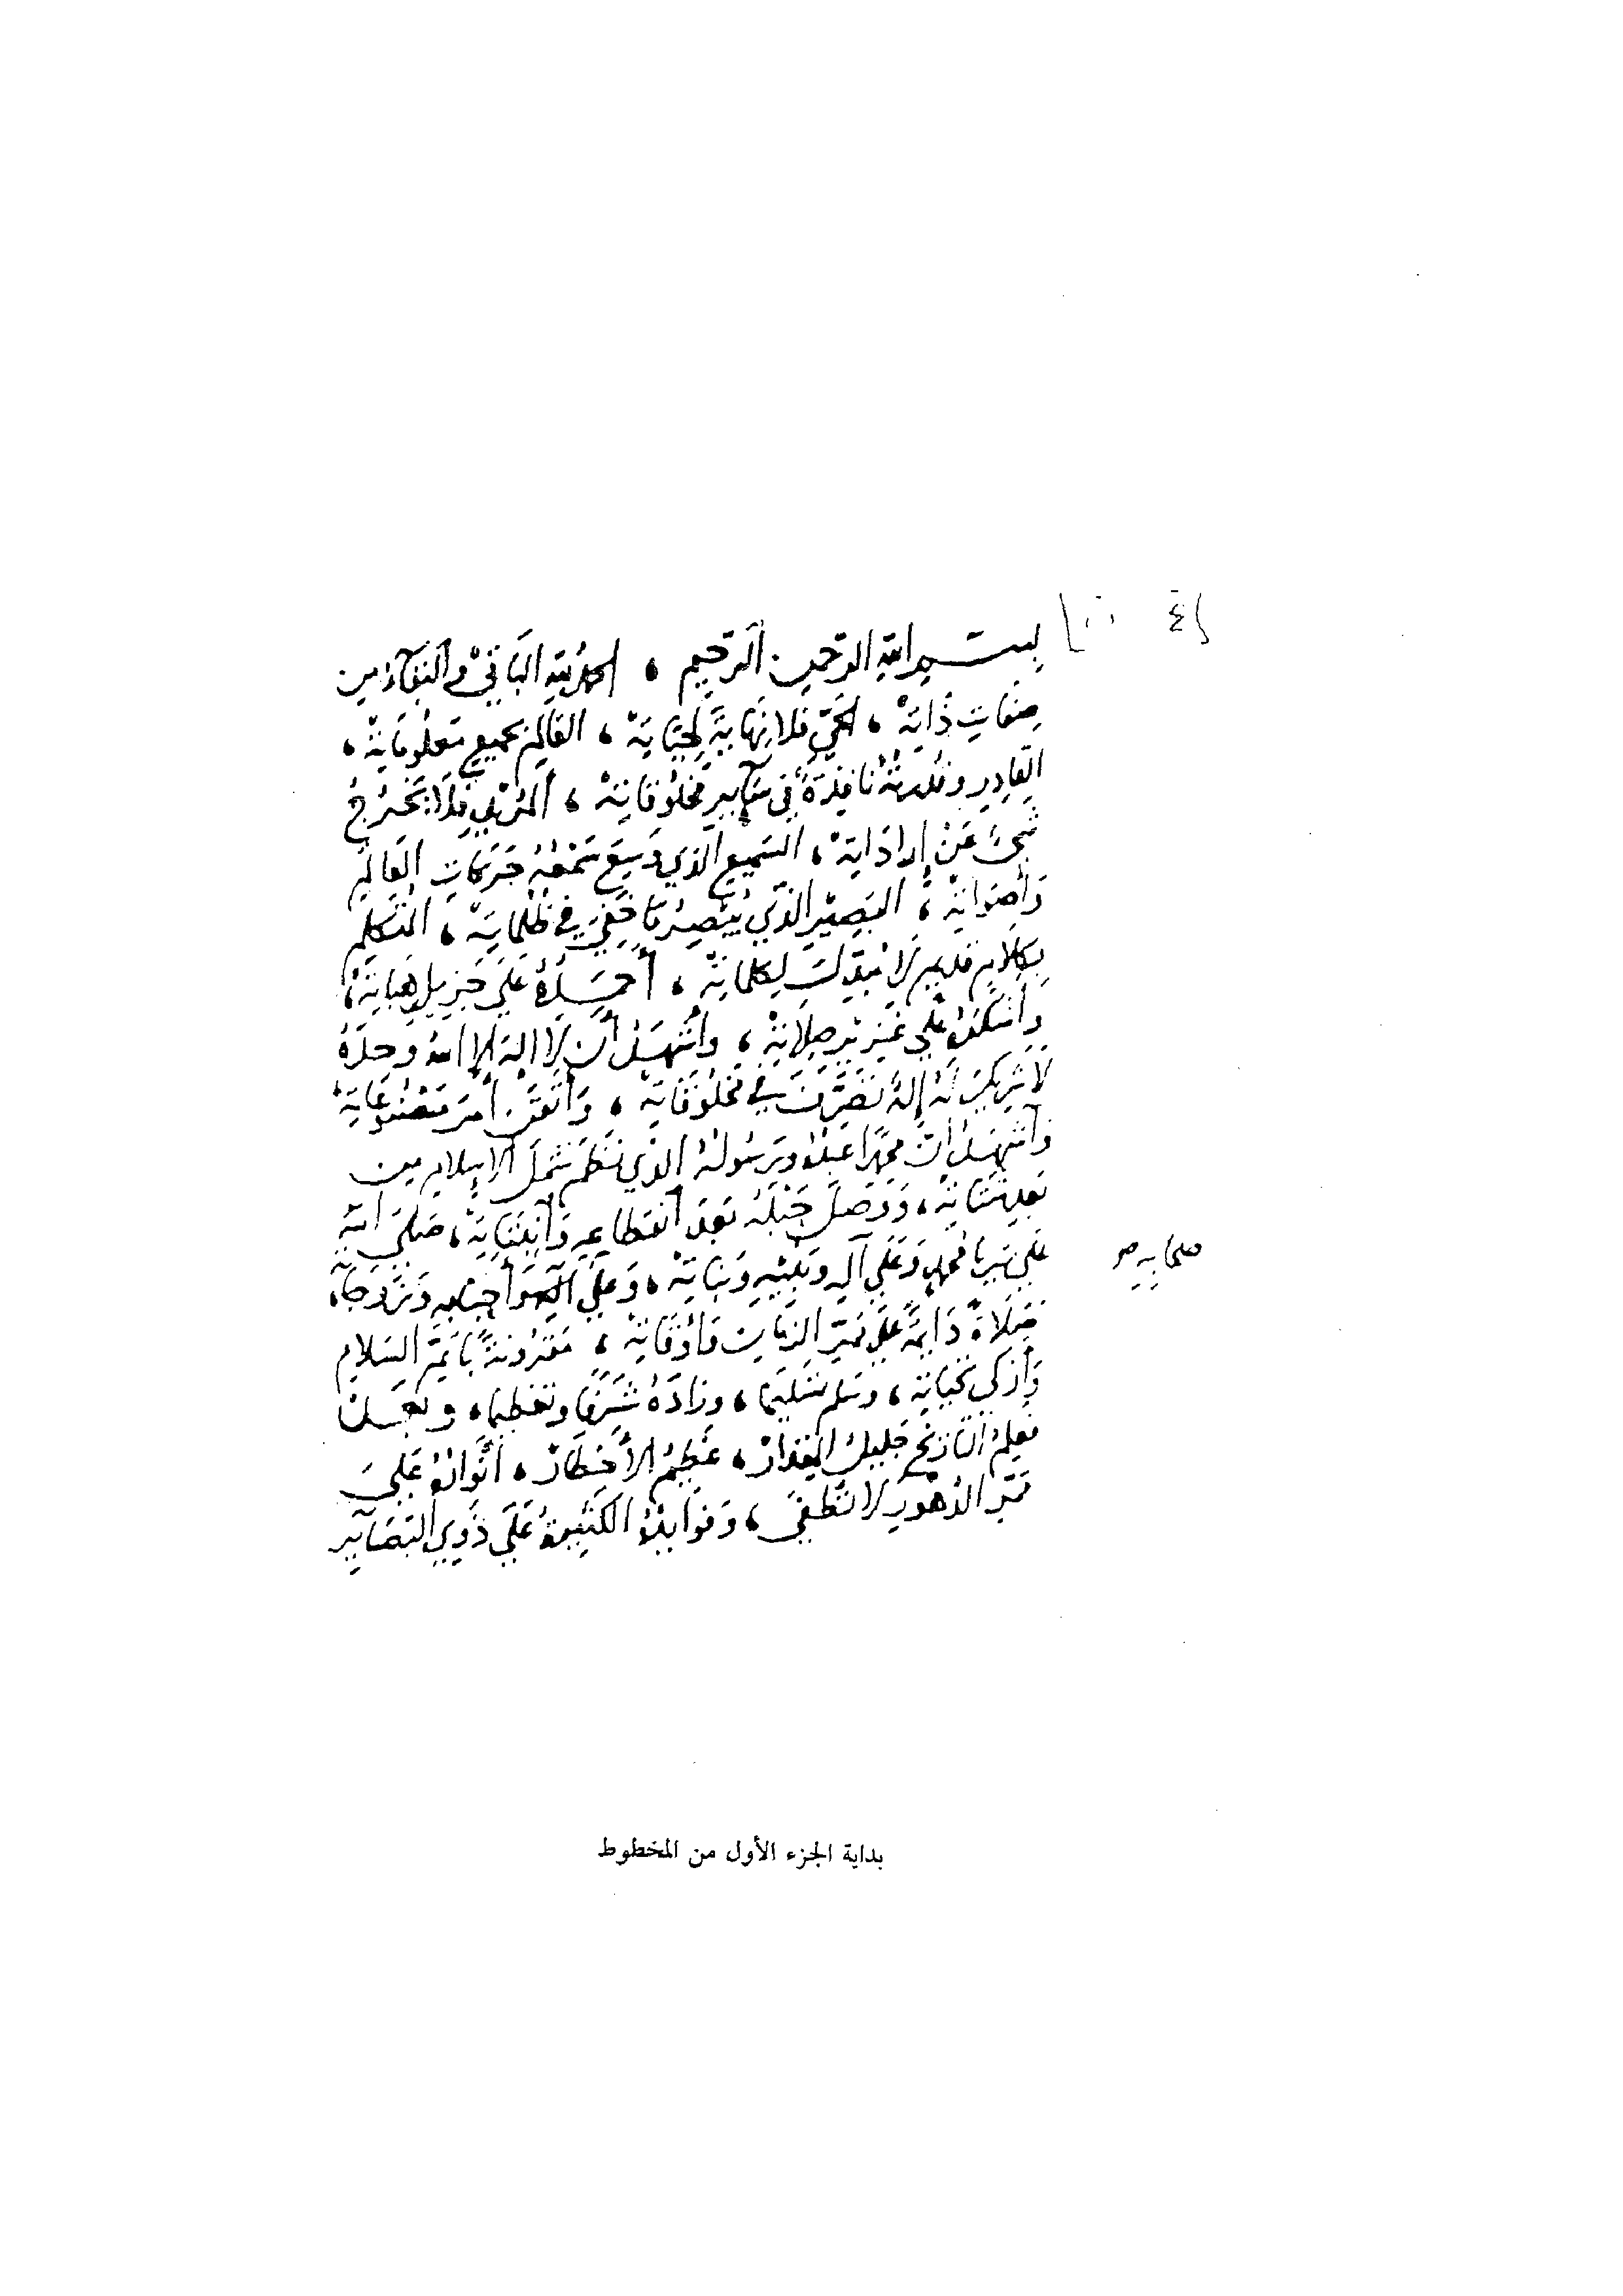 بسم الله الرحمن الرحيم ، الحمد لله الباقي والبقاء من
صفات ذاته ، الحي فلا نهاية لحياته ، العالم بجميع معلوماته ،
القادر وقدرته نافذة في سائر مخلوقاته ، المريد فلا يخرج
شيء عن إراداته ، السميع الذي وسع سمعه حركات العالم
وأصواته ، البصير الذي يبصر ما خفي في ظلماته ، المتكلم
بكلام قديم لا مبدل لكلماته ، أحمده على جزيل هباته ،
وأشكره على غزير صلاته ، وأشهد أن لا اله إلا الله وحده
لا شريك له إله تصرف في مخلوقاته ، وأتقن أمر مصنوعاته
وأشهد أن محمدا عبده ورسوله الذي نظم شمل الإسلام من
بعد شتاته ، ووصل حبله بعد انقطاعه وانبتاته ، صلى الله
على سيدنا محمد وعلى آله وبنيه وبناته ، وعلى أحبابه وزوجاته
صلاة دائمة على ممر الزمان وأوقاته ، مقرونة بأتم السلام
وأزكى تحياته ، وسلم تسليما ، وزاده شرفا وتعظيما ، وبعد
فعلم التاريخ جليل المقدار ، عظيم الأخطار ، أنواره على
ممر الدهور لا تطفى ، وفوايده الكثيرة على ذوي البصاير
بداية الجزء الأول من المخطوط